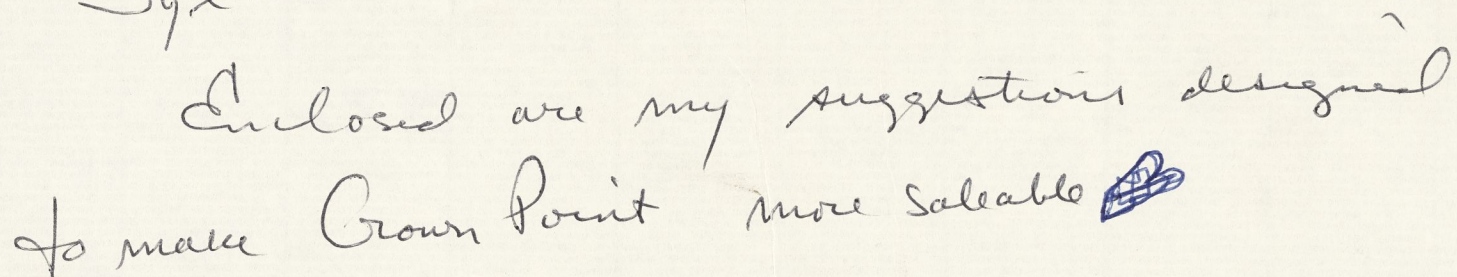 Enclosed are my suggestions designed
to make Crown Point more saleable